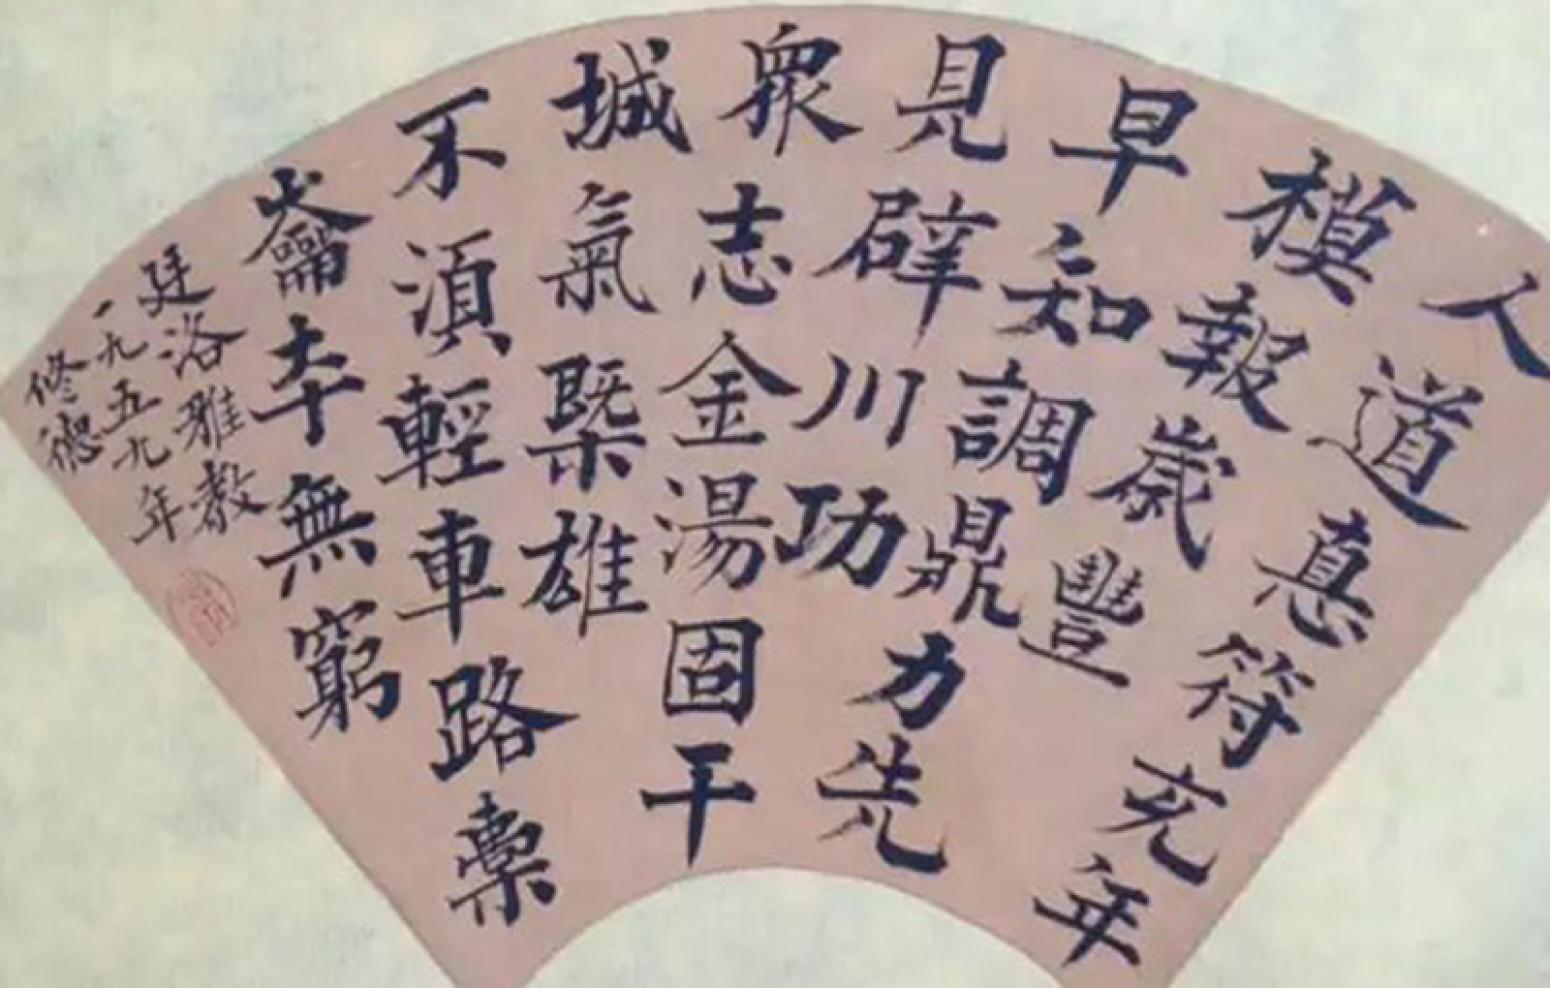 人道真符充年
模報歲豐
早知調鼎力先
見辟川功
眾志金湯固干
城氣槩雄
不須輕車路橐
籥夲無窮
廷洛雅教
一九五九年
修德